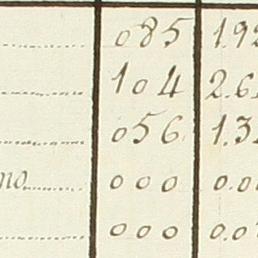 085 1.92
104 2.6
056 1.3
no 000 0.0
000 0.0